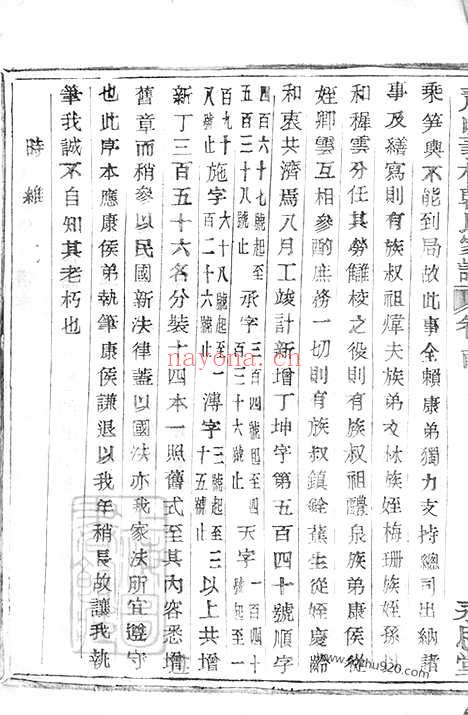 乘筍輿不能到局故此事全賴康弟獨力支持總司出納諸
事及繕寫則有族叔祖煒夫族弟文林族姪梅珊族姪孫
和樨雲分任其勞讎校之役則有族叔祖醴泉族弟康侯
姪卿雲互相參酌庶務一切則有族叔鎮銓葉生從姪慶齡
和衷共濟爲八月工竣計新增丁坤字第五百四十號順字
四百六十七號起至五百七十八號止承字三百四號起至四百三十六號止天字
百九十號起至八號止施字六十八號起至百二十六號止溥字三號起至三十五號止以上共增
新丁三百五十六名分裝十四本一照舊式至其內容悉增
舊章而稍參以民國新法律蓋以國法亦我家法所宜遵守
也此序本應康侯弟執筆康侯謙退以我年稍長故讓我執
筆我誠不自知其老朽也
時維
nayona.cn